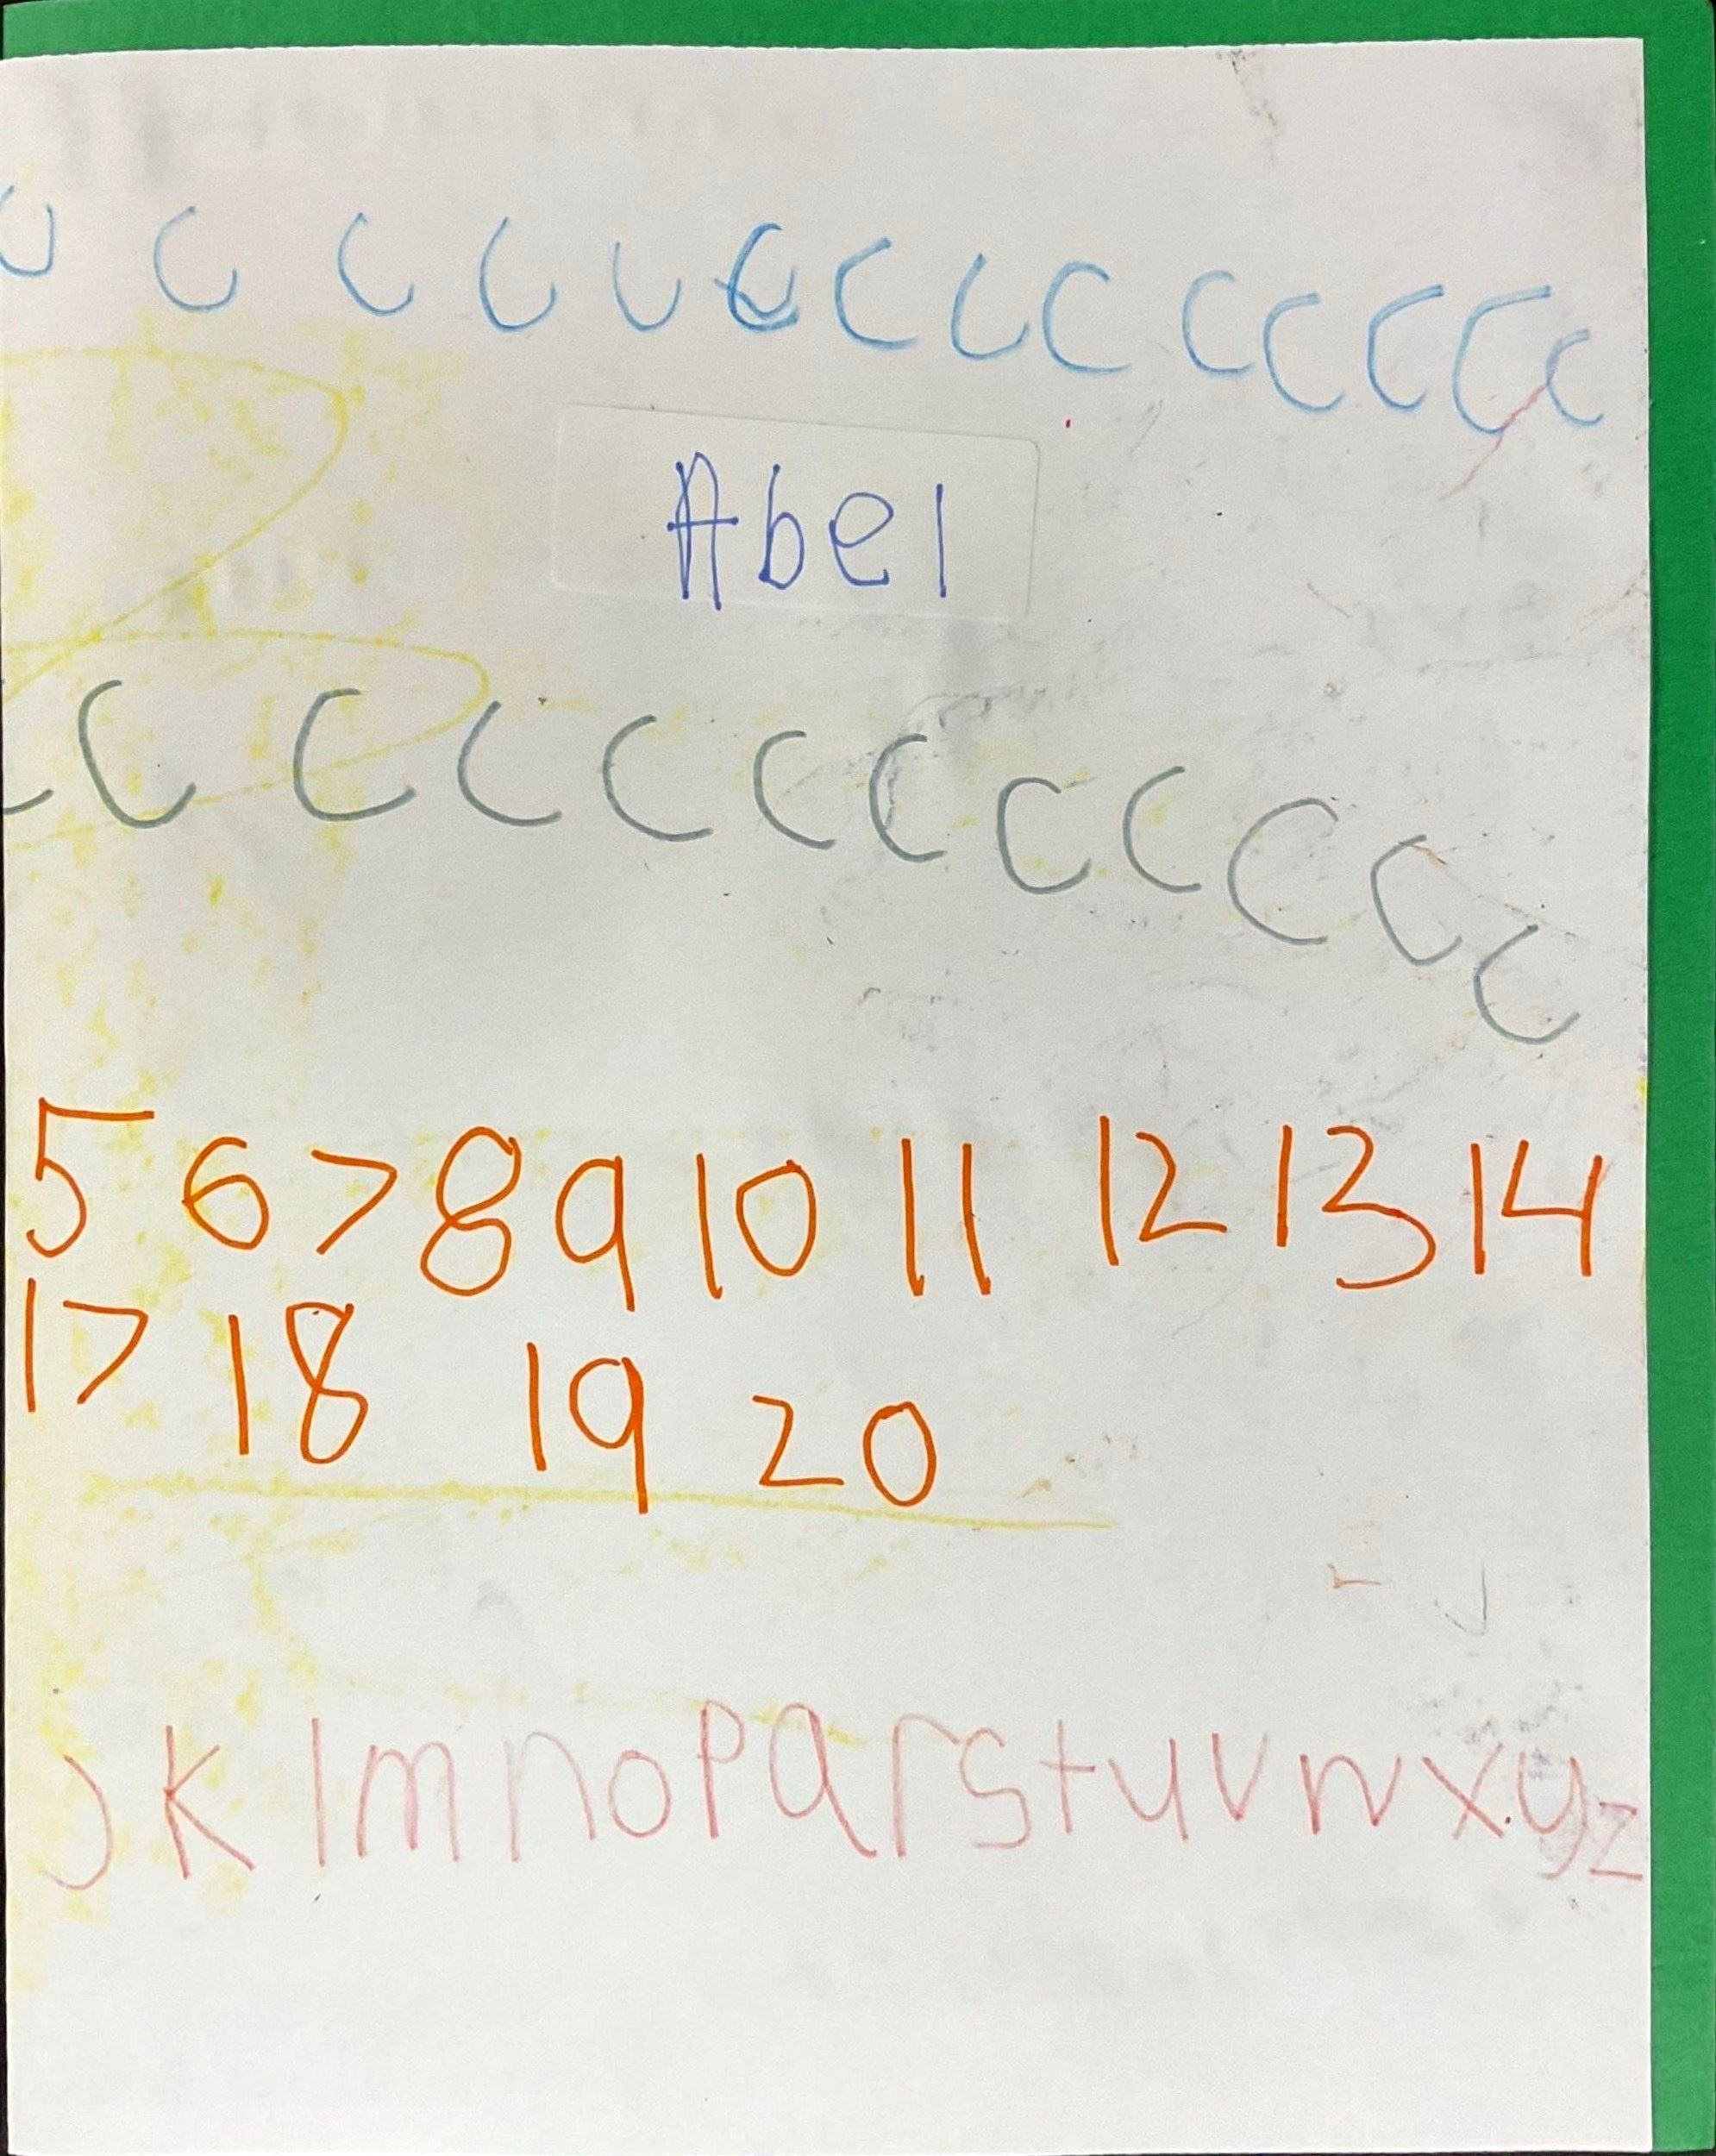 C C C C C C C C C C C C C C
Abel
C C C C C C C C C C C C
5 6 7 8 9 10 11 12 13 14
17 18 19 20
j k l m n o p q r s t u v w x y z